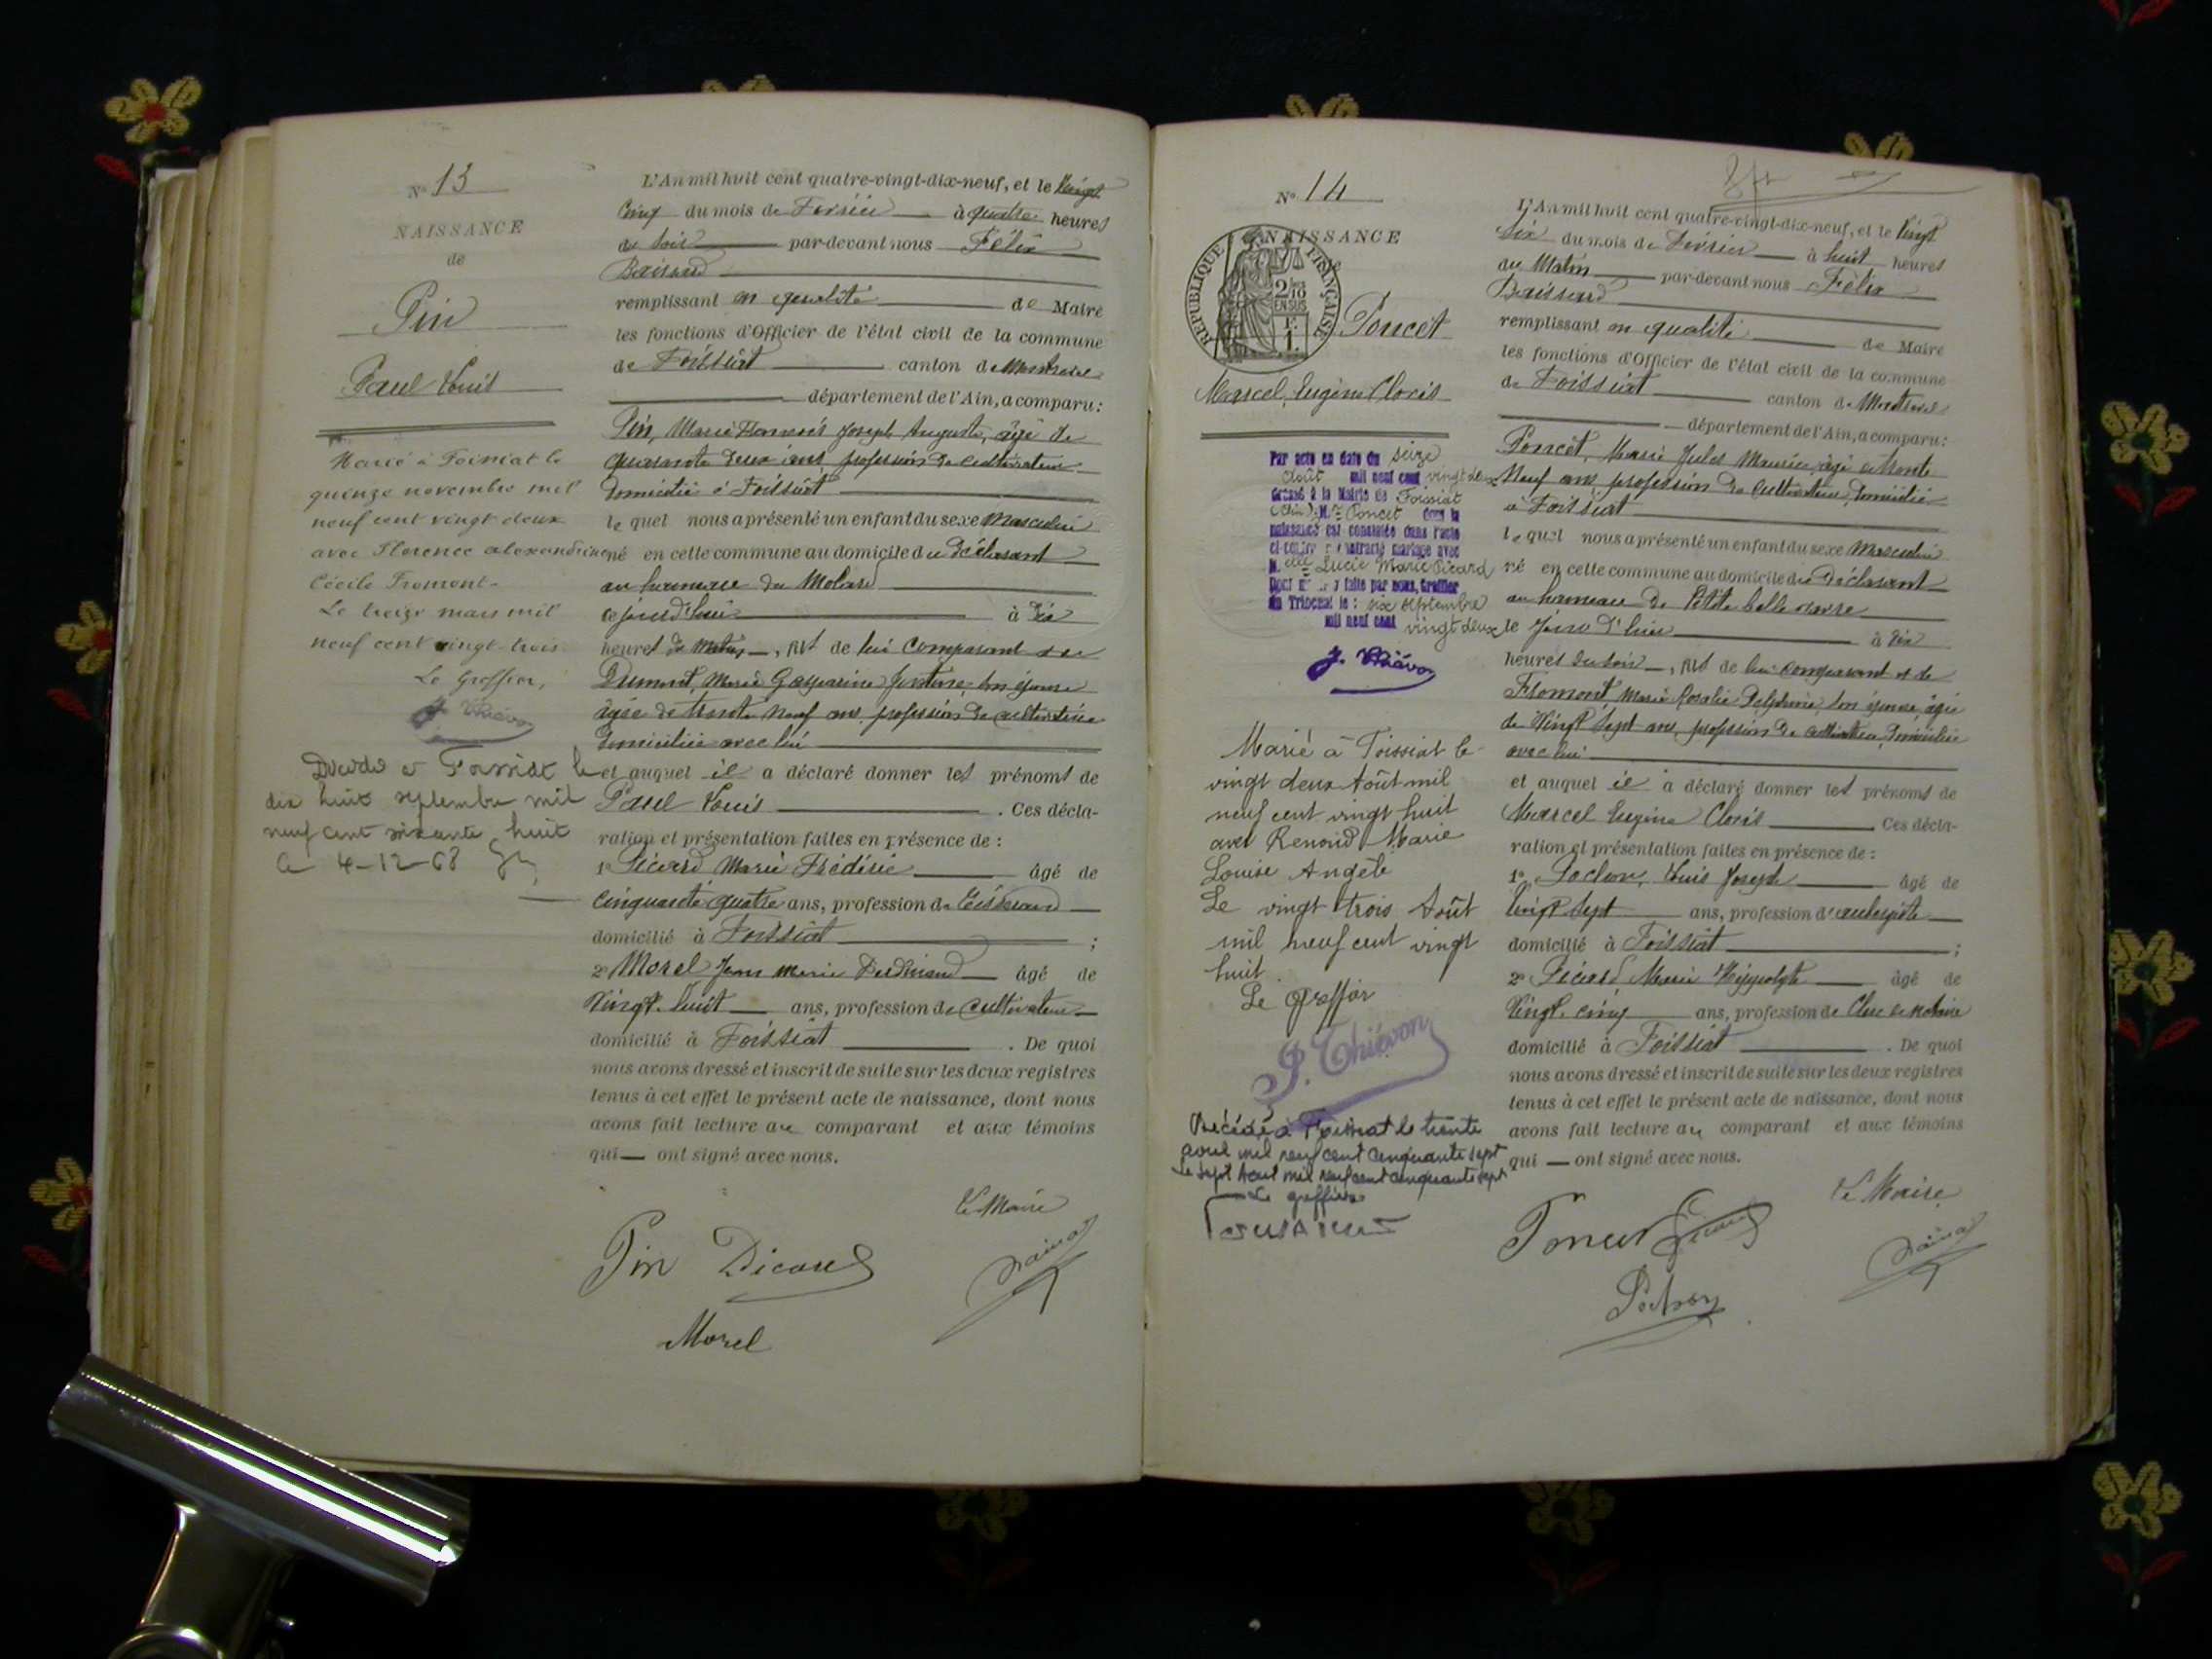 N° 13
NAISSANCE
de
Pin
Paul Louis
Marié à Foissiat le
quinze novembre mil
neuf cent vingt deux
avec Florence alexandrine
Cécile Fromont-
Le treize mars mil
neuf cent vingt-trois
Le Greffier,
Décédé à Foissiat le
dix huit septembre mil
neuf cent soixante huit
Le 4-12-68
L'An mil huit cent quatre-vingt-dix-neuf, et le Vingt
Cinq du mois de Février à quatre heures
du soir par-devant nous Félix
remplissant en qualité de Maire
les fonctions d'Officier de l'état civil de la commune
de Foissiat canton de Montrevel
département de l'Ain, a comparu:
Pin, Marie Joseph Auguste, âgé de
quarante deux ans, profession de cultivateur
domicilié à Foissiat
le quel nous a présenté un enfant du sexe Masculin
né en cette commune au domicile du Déclarant
au hameau du Molard
cejourd'hui à dix
heures du Matin, fils de lui Comparant et de
Dumont, Marie Gasparine Justine, son épouse
âgée de trente neuf ans, profession de cultivatrice
domiciliée avec lui
et auquel il a déclaré donner les prénoms de
Paul Louis . Ces décla-
ration et présentation faites en présence de :
1° Picard Marie Frédéric âgé de
Cinquante quatre ans, profession de Tisserand
domicilié à Foissiat ;
2° Morel Jean Marie Ferdinand âgé de
Vingt huit ans, profession de Cultivateur
domicilié à Foissiat . De quoi
nous avons dressé et inscrit de suite sur les deux registres
tenus à cet effet le présent acte de naissance, dont nous
avons fait lecture au comparant et aux témoins
qui — ont signé avec nous.
Le Maire
Pin Picard
Morel
N° 14
NAISSANCE
REPUBLIQUE FRANÇAISE
2/10
EN SUS
F.
1.
Poncet
Marcel, Eugène Cloris
Par acte en date du seize
Août mil neuf cent vingt deux
dressé à la Mairie de Foissiat
(Ain) M. Poncet dont la
naissance est constatée dans l'acte
ci-contre a contracté mariage avec
Melle Lucie Marie Picard
Dont mention faite par nous, Greffier
du Tribunal le : six septembre
mil neuf cent vingt deux
Marié à Foissiat le
vingt deux Août mil
neuf cent vingt huit
avec Renoud Marie
Louise Angèle
Le vingt trois Août
mil neuf cent vingt
huit.
Le Greffier
P. Thiévon
Décédé à Foissiat le trente
avril mil neuf cent cinquante sept
Le sept Aout mil neuf cent cinquante sept
Le greffier
L'An mil huit cent quatre-vingt-dix-neuf, et le Vingt
Six du mois de Février à huit heures
du Matin par-devant nous Félix
remplissant en qualité de Maire
les fonctions d'Officier de l'état civil de la commune
de Foissiat canton de Montrevel
département de l'Ain, a comparu:
Poncet, Marie Jules Maurice, âgé de trente
Neuf ans, profession de Cultivateur, domicilié
à Foissiat
le quel nous a présenté un enfant du sexe Masculin
né en cette commune au domicile du Déclarant
au hameau de Petite
le jour d'hier à dix
heures du soir, fils de lui Comparant et de
Fromont Marie Rosalie Delphine, son épouse, âgée
de Vingt Sept ans, profession de cultivatrice, Domiciliée
avec lui
et auquel il a déclaré donner les prénoms de
Marcel Eugène Cloris Ces décla-
ration et présentation faites en présence de :
1° Pochon, Louis Joseph âgé de
Vingt Sept ans, profession d'aubergiste
domicilié à Foissiat ;
2° Picard Marie Hippolyte âgé de
Vingt cinq ans, profession de Clerc de Notaire
domicilié à Foissiat . De quoi
nous avons dressé et inscrit de suite sur les deux registres
tenus à cet effet le présent acte de naissance, dont nous
avons fait lecture au comparant et aux témoins
qui — ont signé avec nous.
Le Maire
Poncet Picard
Pochon